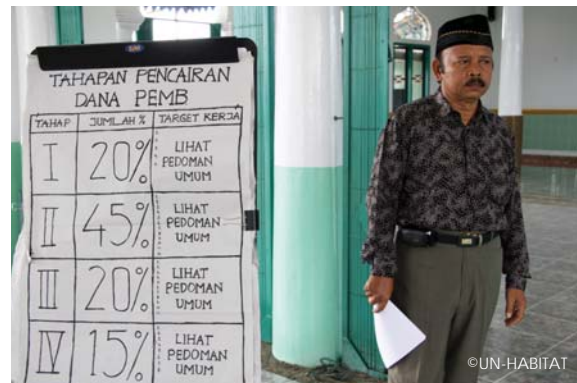 TAHAPAN PENCAIRAN
DANA PEMB
TAHAP JUMLAH % TARGET KERJA
I 20% LIHAT
PEDOMAN
UMUM
II 45% LIHAT
PEDOMAN
UMUM
III 20% LIHAT
PEDOMAN
UMUM
IV 15% LIHAT
PEDOMAN
UMUM
©UN-HABITAT